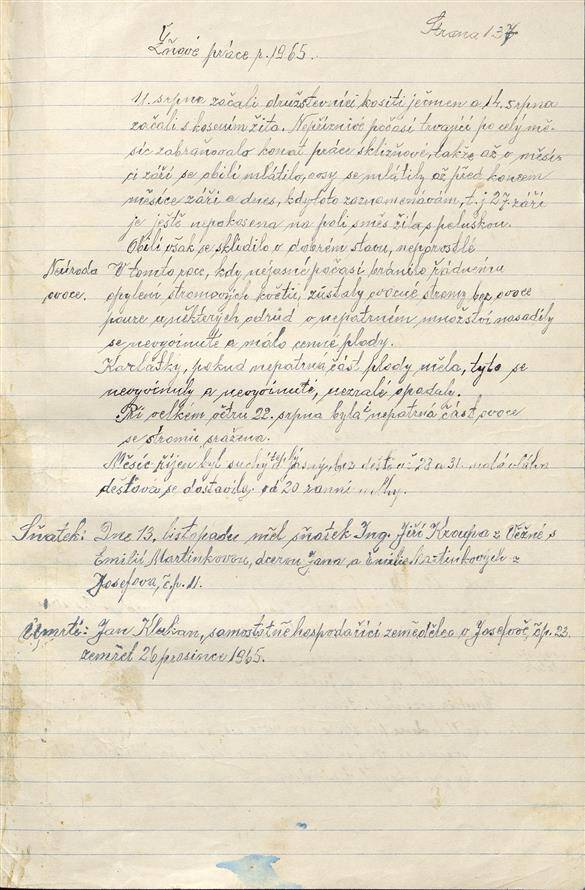 Strana 137
Žňové práce r. 1965.
11. srpna začali družstevníci kositi ječmen a 14. srpna
začali s kosením žita. Nepříznivé počasí trvající po celý mě-
síc zabraňovalo konat práce sklizňové, takže až v měsí-
ci září se obilí mlátilo, ovsy se mlátily až před koncem
měsíce září a dnes, kdy toto zaznamenávám, t. j 27. září
je ještě nepokosena na poli směs žita s peluškou.
Obilí však se sklidilo v dobrém stavu, neporostlé
Neúroda V tomto roce, kdy nejasné počasí bránilo řádnému
ovoce. opylení stromových květů, zůstaly ovocné stromy bez ovoce
pouze u některých odrůd v nepatrném množství nasadily
se nevyvinuté a málo cenné plody.
Karlátky, pokud nepatrná část plody měla, tyto se
nevyvinuly a nevyvinuté, nezralé opadaly.
Při velkém větru 22. srpna byla i nepatrná část ovoce
se stromů sražena.
Měsíc říjen byl suchý teplý jasný, bez deště až 28 a 31. malá vláha
dešťová se dostavily od 20 ranní mlhy.
Sňatek: Dne 13. listopadu měl sňatek Ing. Jiří Kroupa z Věžné s
Emilií Martinkovou, dcerou Jana a Emilie Martinkových z
Josefova, č.p. 11.
Úmrtí: Jan Klukan, samostatně hospodařící zemědělec v Josefově, čp. 23.
zemřel 26 prosince 1965.